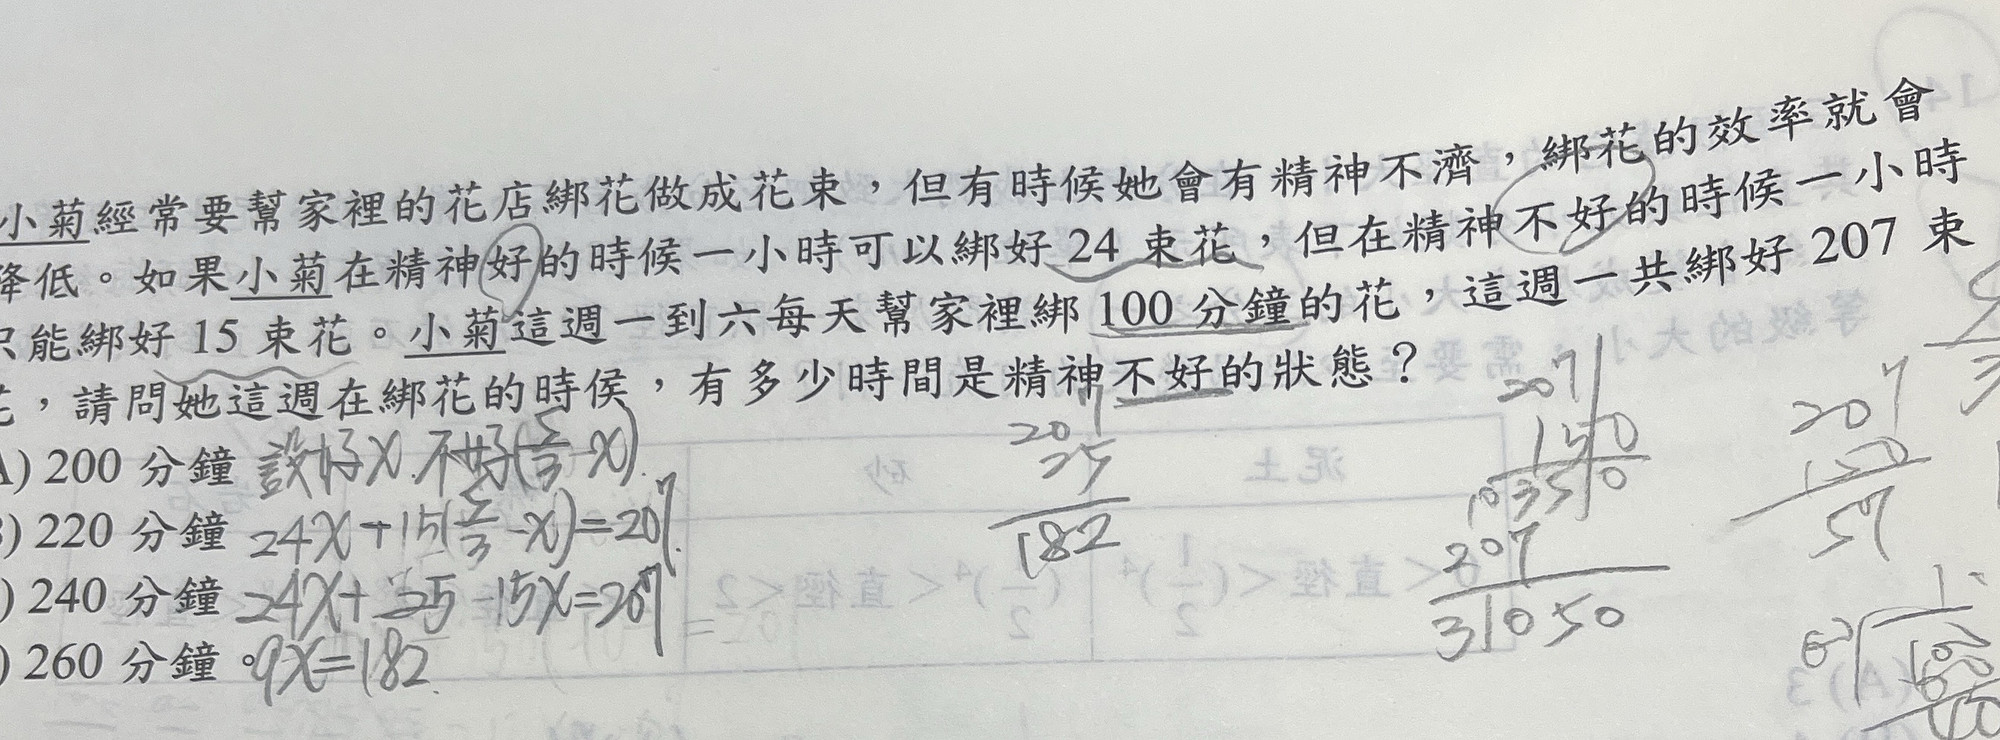 小菊經常要幫家裡的花店綁花做成花束，但有時候她會有精神不濟，綁花的效率就會
降低。如果小菊在精神好的時候一小時可以綁好 24 束花，但在精神不好的時候一小時
只能綁好 15 束花。小菊這週一到六每天幫家裡綁 100 分鐘的花，這週一共綁好 207 束
花，請問她這週在綁花的時侯，有多少時間是精神不好的狀態？
A) 200 分鐘
) 220 分鐘
) 240 分鐘
) 260 分鐘
設好X.不好(5/3-X).
24X+15(5/3-X)=207.
24X+25-15X=207
9X=182
207
25
182
207
150
10350
207
31050
207
150
57